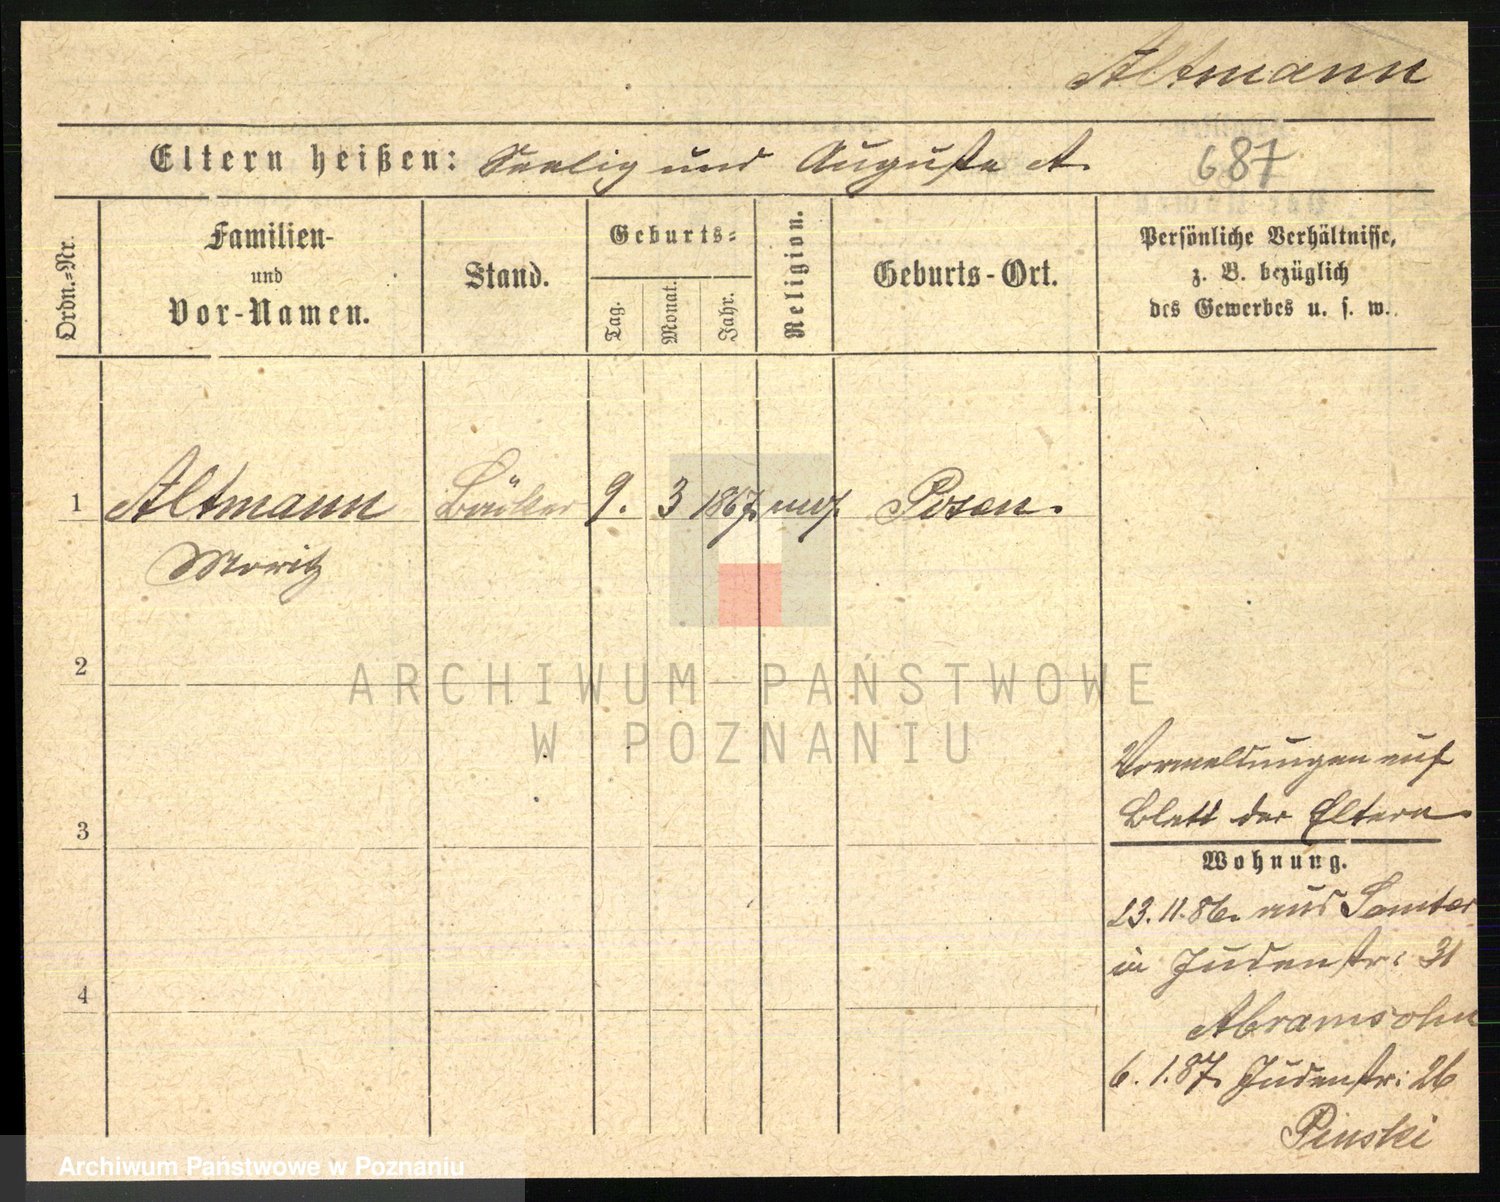 Altmann
Eltern heißen: Seelig und Auguste A.
687
Ordn.=Nr.
Familien-
und
Vor-Namen.
Stand.
Geburts=
Tag.
Monat.
Jahr.
Religion.
Geburts-Ort.
Persönliche Verhältnisse,
z. B. bezüglich
des Gewerbes u. s. w.
1 Altmann Bäcker 9. 3 1867. mos. Posen.
Moritz
2
ARCHIWUM PAŃSTWOWE
W POZNANIU
Vormeldungen auf
Blatt der Eltern
3
Wohnung.
23.11.86. aus Samter
in Judenstr: 31
4
Abramsohn
6.1.87. Judenstr: 26
Pinski
Archiwum Państwowe w Poznaniu